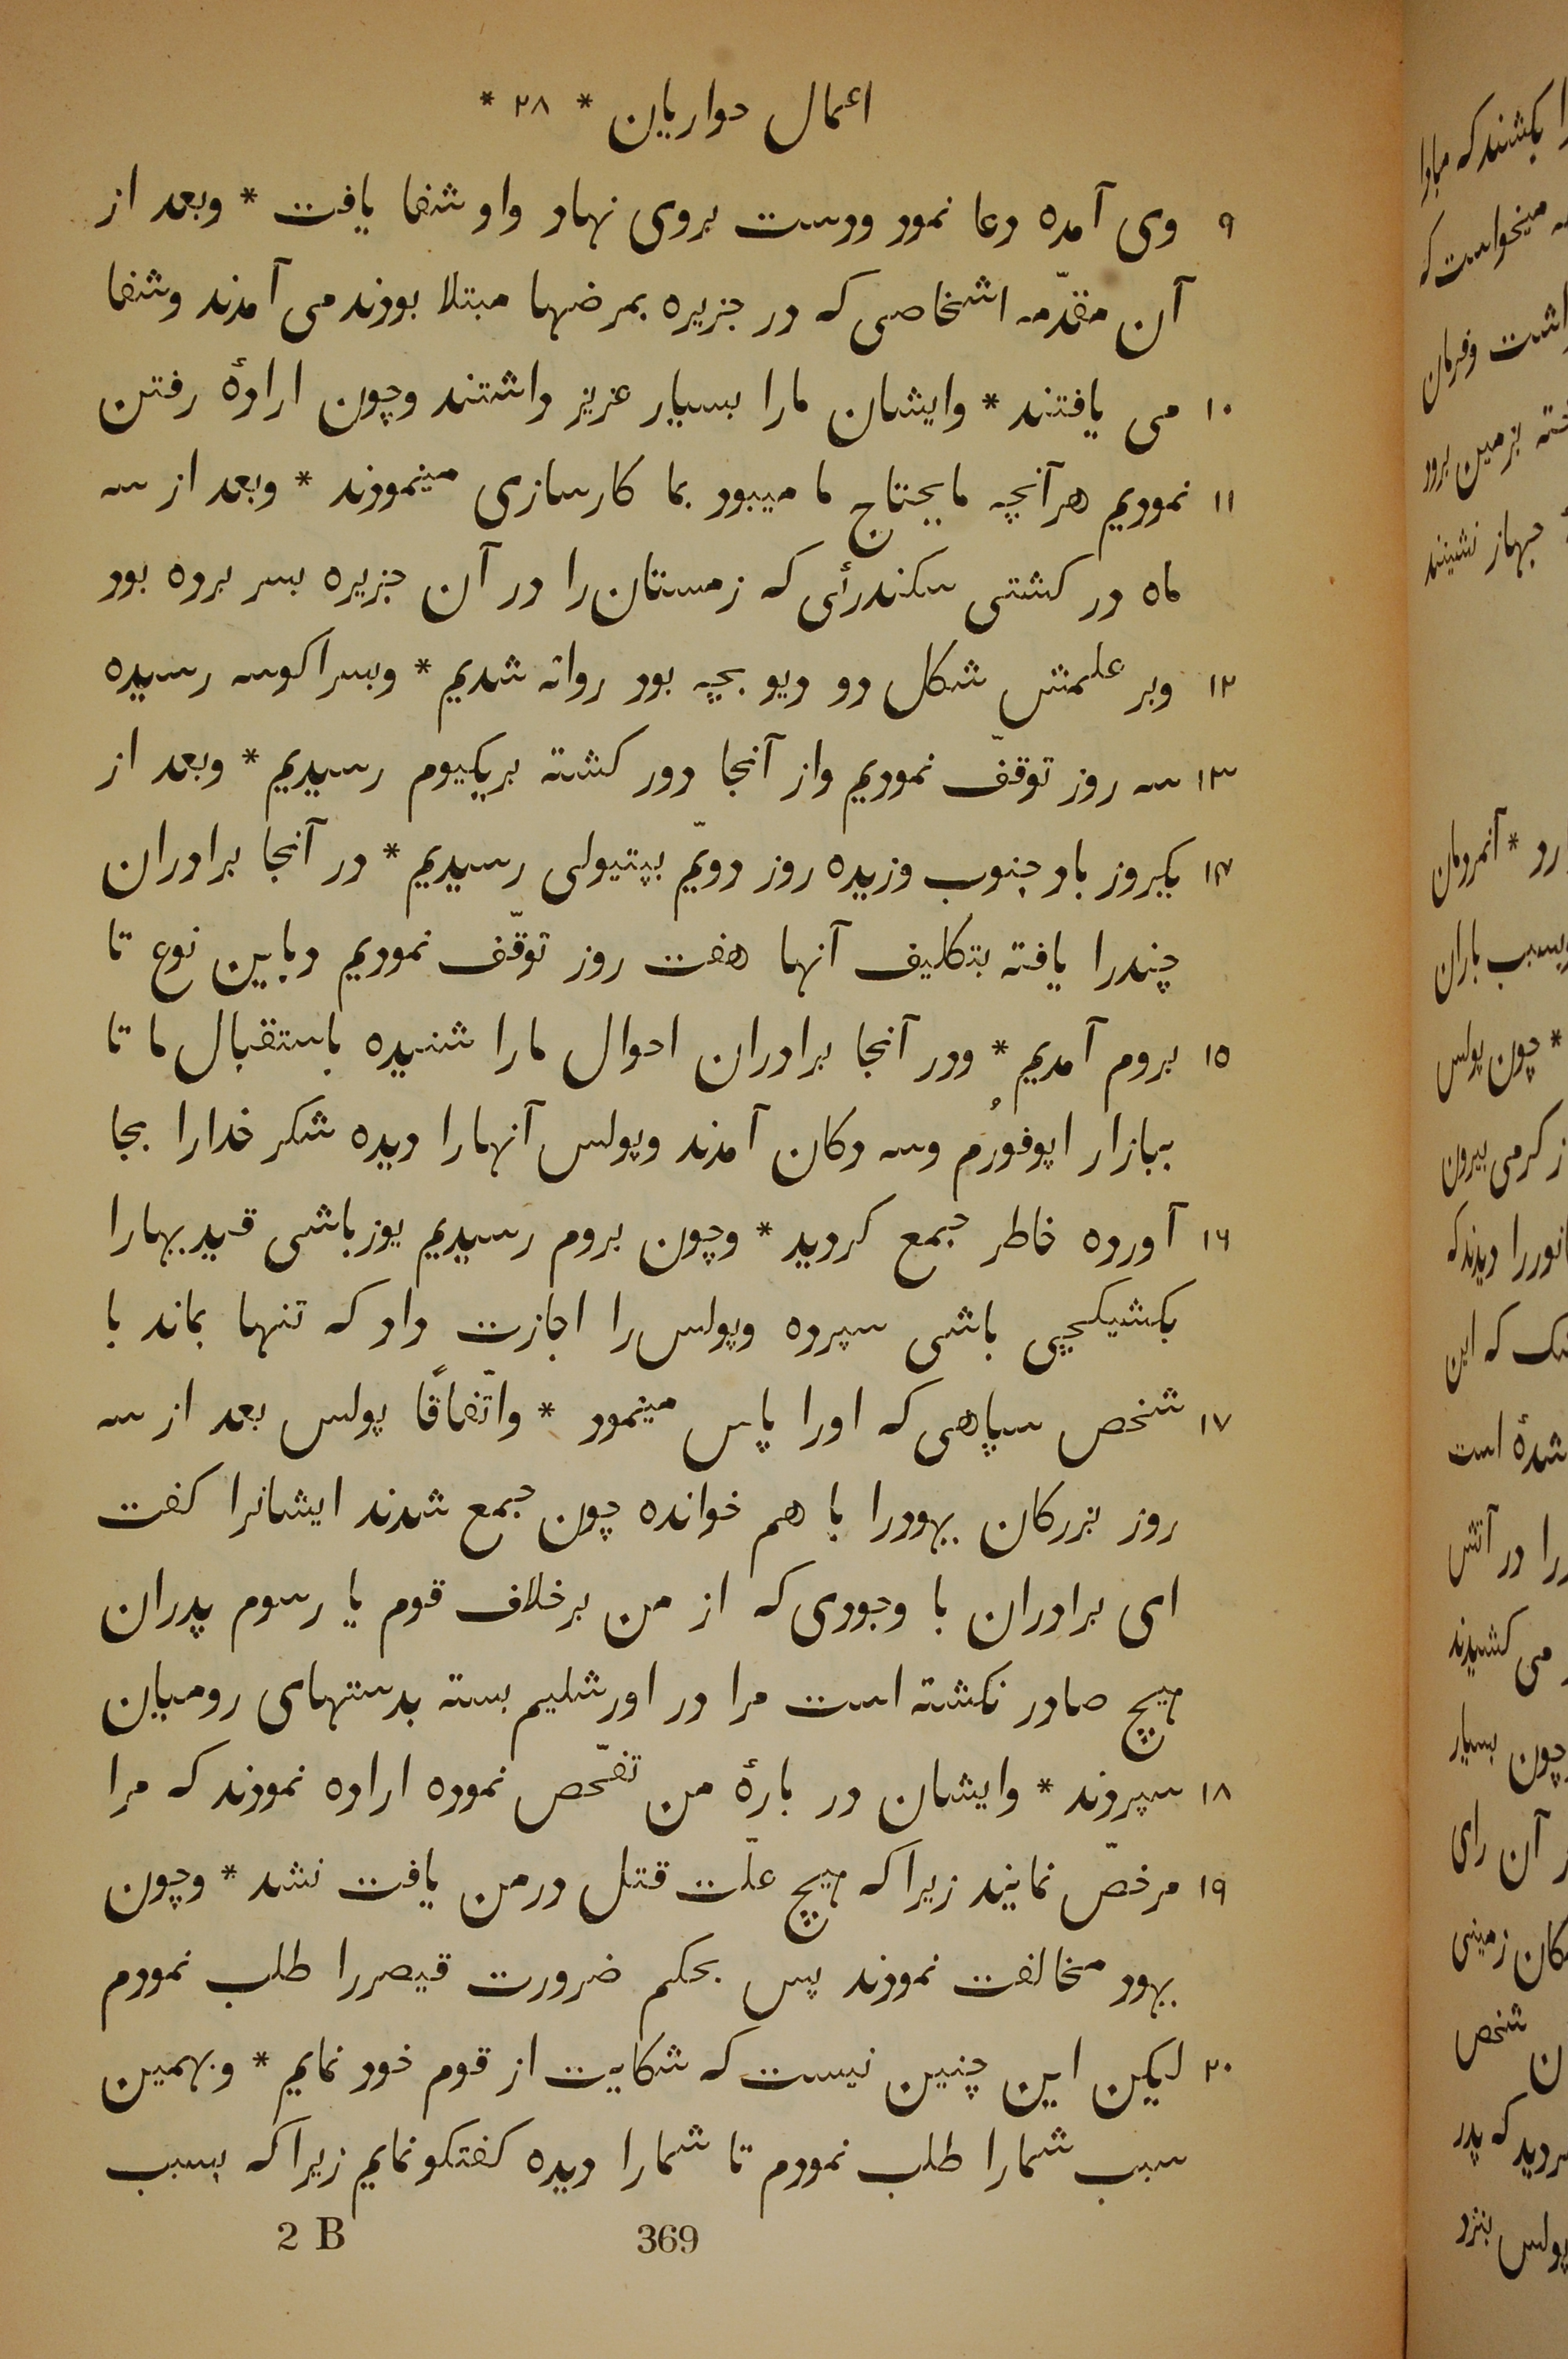 اعمال حواریان * ۲۸ *
۹ وی آمده دعا نمود ودست بروی نهاد واو شفا یافت * وبعد از
آن مقدّمه اشخاصی که در جزیره بمرضها مبتلا بودند می آمدند وشفا
۱۰ می یافتند * وایشان مارا بسیار عزیز داشتند وچون ارادهٔ رفتن
۱۱ نمودیم هرآنچه مایحتاج ما میبود بما کارسازی مینمودند * وبعد از سه
ماه در کشتی سکندرئی که زمستان را در آن جزیره بسر برده بود
۱۲ وبر علمش شکل دو دیو بچه بود روانه شدیم * وبسراکوسه رسیده
۱۳ سه روز توقّف نمودیم واز آنجا دور کشته بریکیوم رسیدیم * وبعد از
۱۴ یکروز باد جنوب وزیده روز دویّم بپتیولی رسیدیم * در آنجا برادران
چندرا یافته بتکلیف آنها هفت روز توقّف نمودیم وباین نوع تا
۱۵ بروم آمدیم * ودر آنجا برادران احوال مارا شنیده باستقبال ما تا
ببازار اپوفورُم وسه دکان آمدند وپولس آنهارا دیده شکر خدارا بجا
۱۶ آورده خاطر جمع کردید * وچون بروم رسیدیم یوزباشی قیدیهارا
بکشیکچی باشی سپرده وپولس را اجازت داد که تنها بماند با
۱۷ شخص سپاهی که اورا پاس مینمود * واتّفاقًا پولس بعد از سه
روز بزرکان یهودرا با هم خوانده چون جمع شدند ایشانرا کفت
ای برادران با وجودی که از من برخلاف قوم یا رسوم پدران
هیچ صادر نکشته است مرا در اورشلیم بسته بدستهای رومیان
۱۸ سپردند * وایشان در بارهٔ من تفحّص نموده اراده نمودند که مرا
۱۹ مرخصّ نمایند زیرا که هیچ علّت قتل درمن یافت نشد * وچون
یهود مخالفت نمودند پس بحکم ضرورت قیصررا طلب نمودم
۲۰ لیکن این چنین نیست که شکایت از قوم خود نمایم * وبهمین
سبب شمارا طلب نمودم تا شمارا دیده کفتکو نمایم زیرا که بسبب
2 B 369
را بکشند که مبادا
میخواست که
داشت وفرمان
برمین برود
جهاز نشینند
آنمردمان
وبسبب باران
* چون پولس
از کرمی بیرون
جانوررا دیدند که
که این
شده است
را در آتش
می کشیدند
چون بسیار
آن رای
مکان زمینی
شخص
که پدر
پولس بنزد